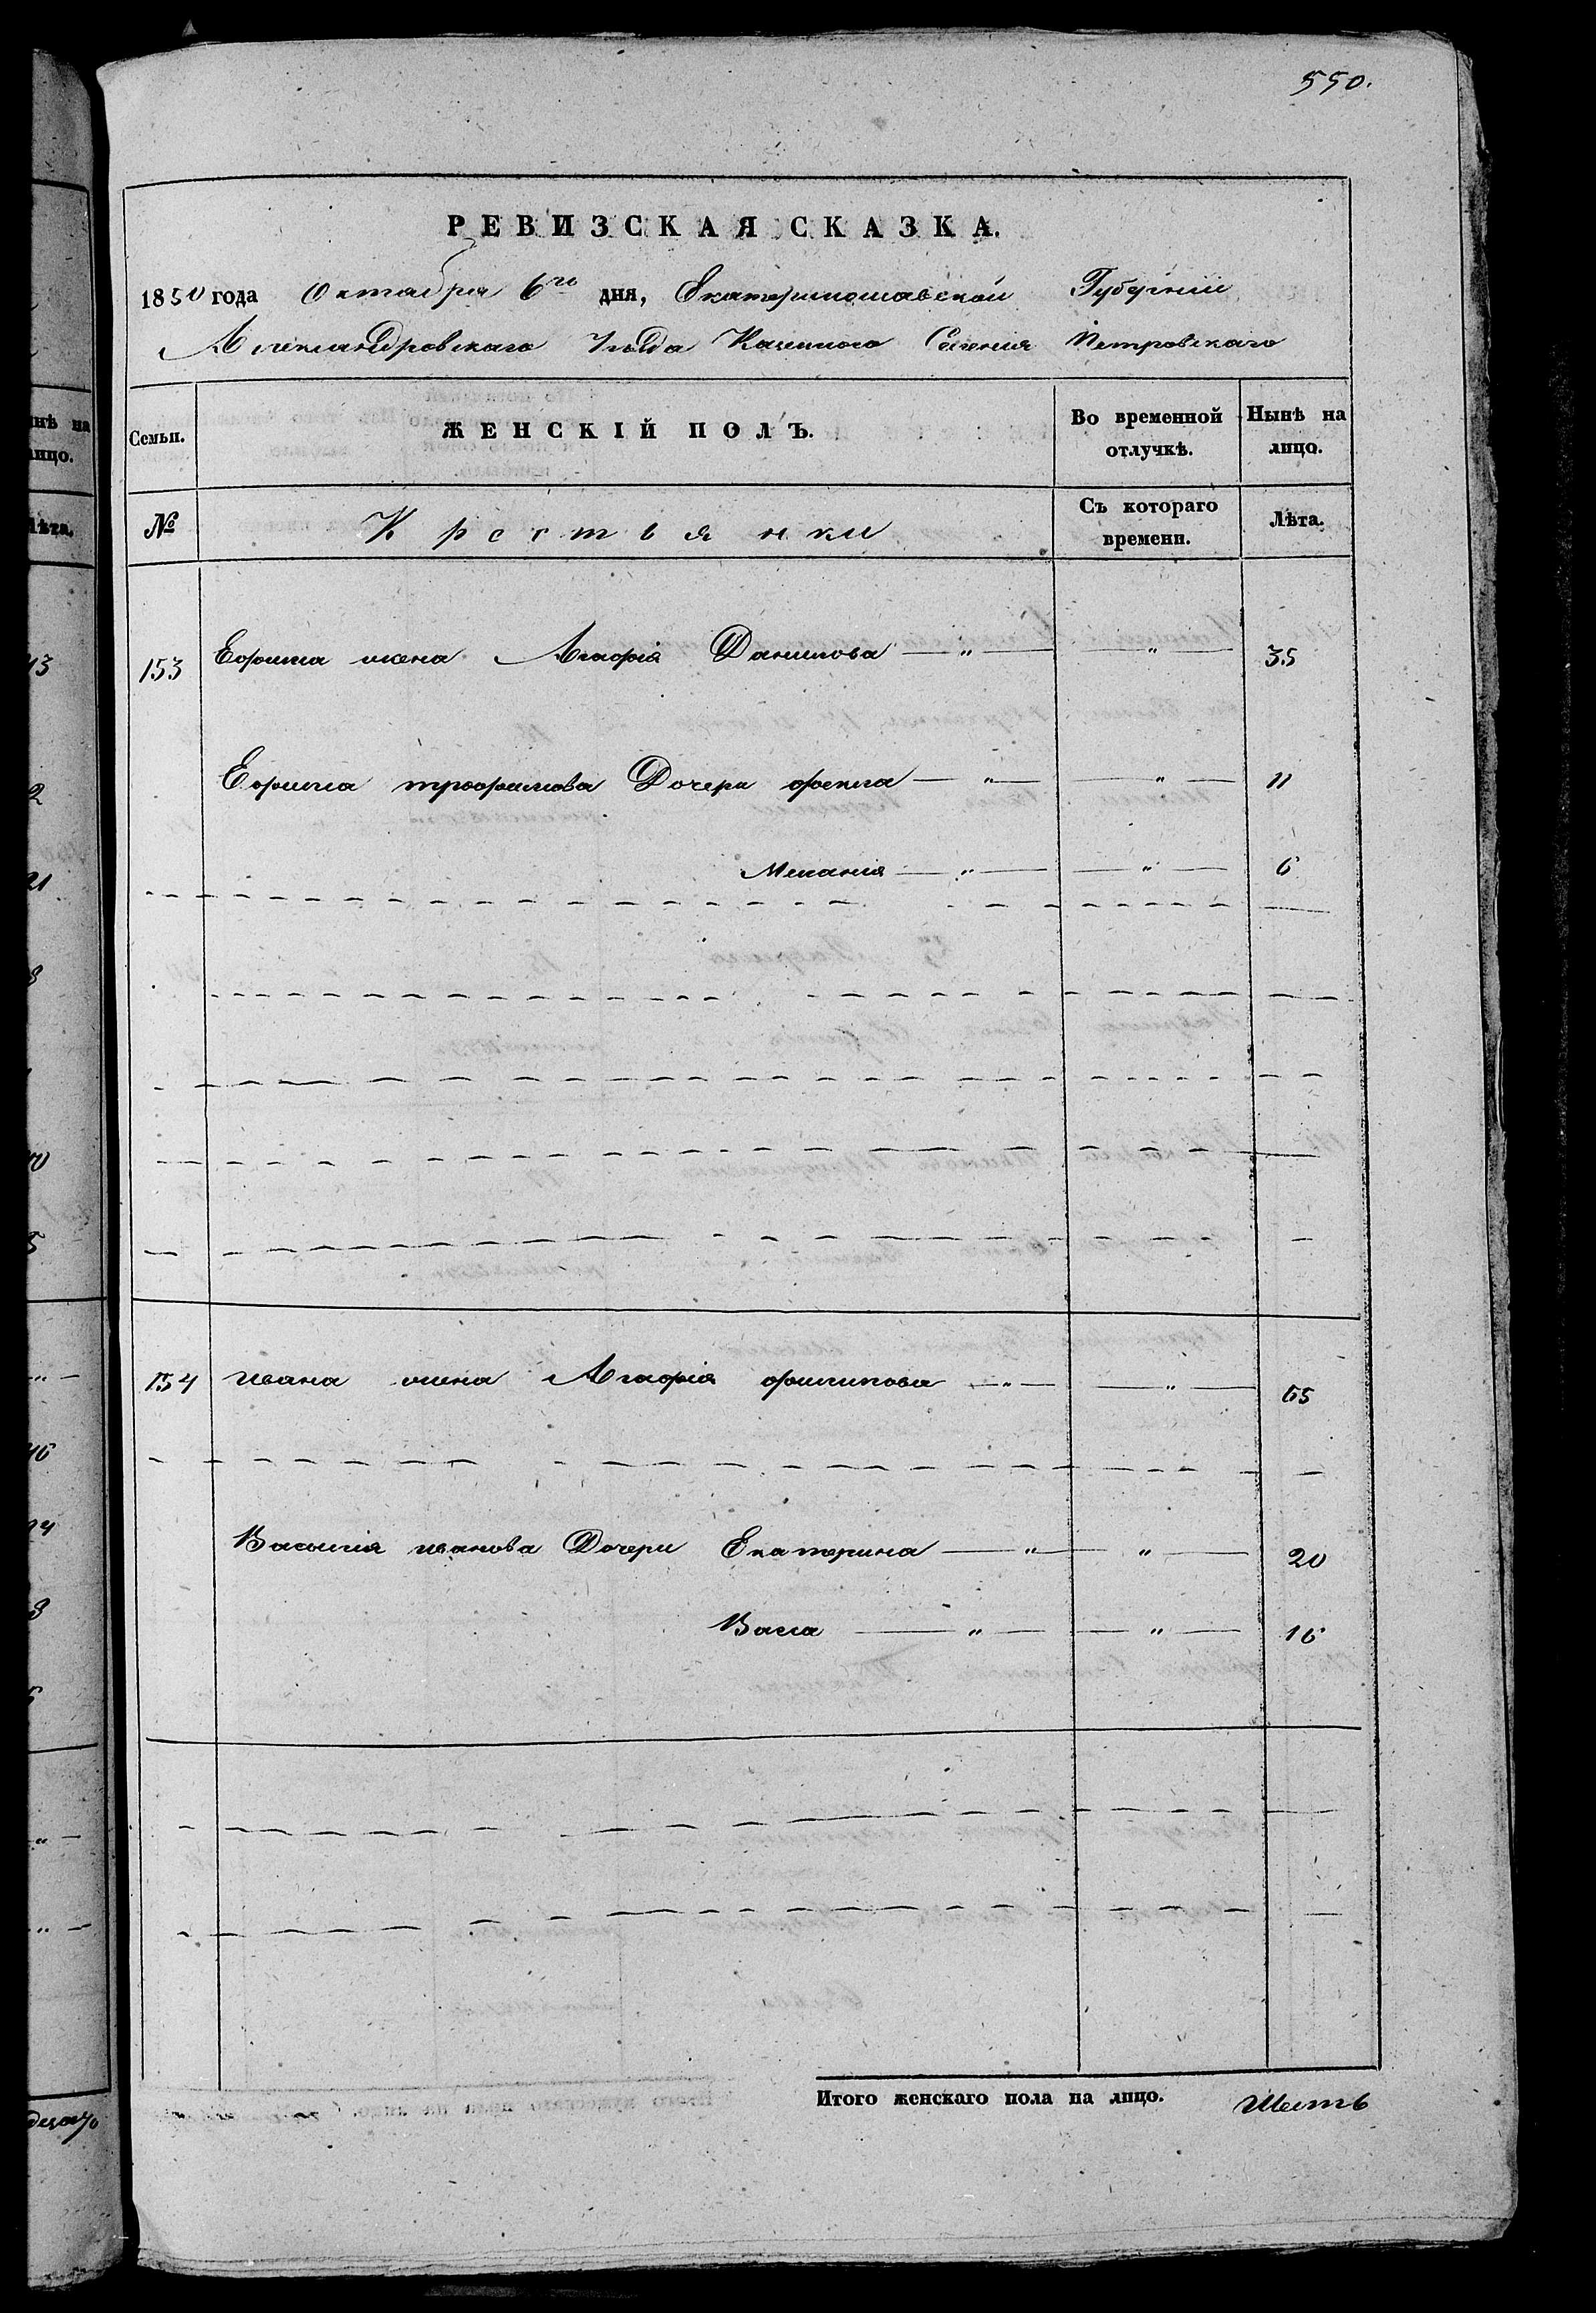 550.
РЕВИЗСКАЯ СКАЗКА.
1850 года Октября 6го дня, Екатеринославской Губерніи
Александровскаго Уѣзда Казенного Селенія Петровскаго
Семьи. ЖЕНСКІЙ ПОЛЪ. Во временной отлучкѣ. Нынѣ на лицо.
№ Крестьянки Съ котораго времени. Лѣта.
153 Ефима жена Агафія Данилова — „ — — „ — 35
Ефима трофимова Дочери фекла — „ — — „ — 11
Мелания — „ — — „ — 6
154 ивана жена Агафія филипова — „ — — „ — 65
Василия иванова Дочери Екатерина — „ — — „ — 20
Васса — „ — — „ — 16
Итого женскаго пола на лицо. Шесть